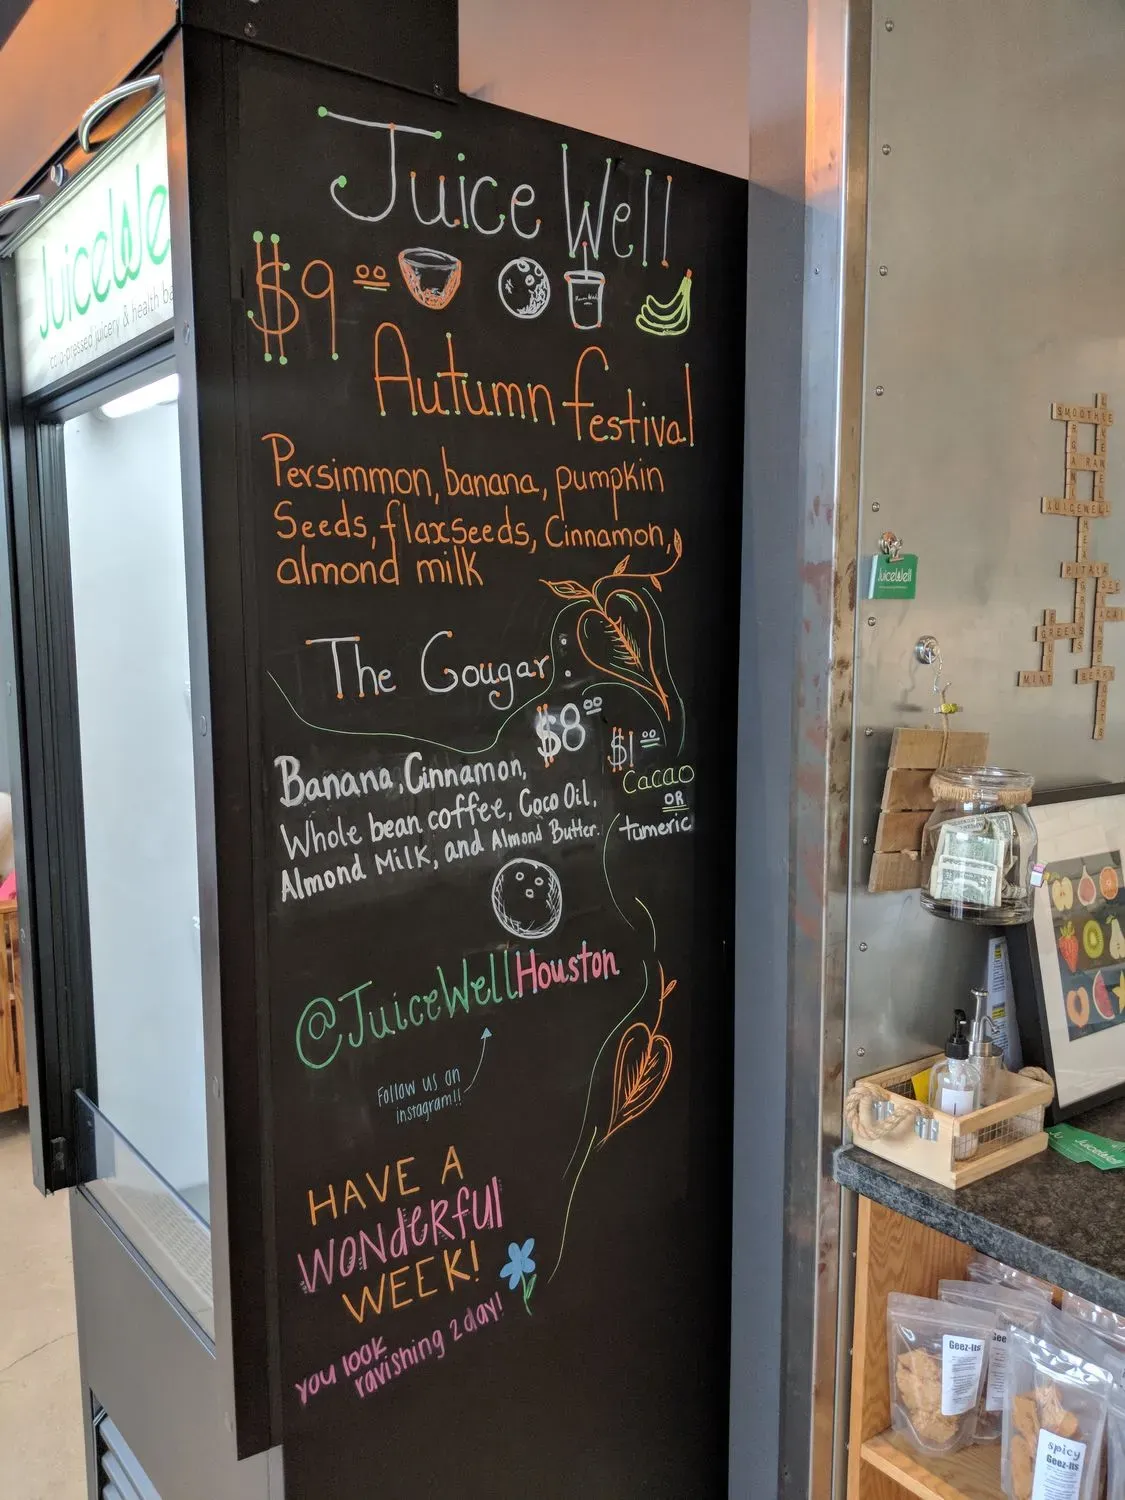 JuiceWe
cold-pressed juicery & health ba
Juice Well
$9.00
Autumn festival
Persimmon, banana, pumpkin
Seeds, flaxseeds, Cinnamon,
almond milk
The Cougar:
$8.00
$1.00
Cacao
OR
tumeric
Banana, Cinnamon,
Whole bean coffee, Coco Oil,
Almond Milk, and Almond Butter.
@JuiceWellHouston
Follow us on
instagram!!
HAVE A
WONderful
WEEK!
you look
ravishing 2day!
JuiceWell
SMOOTHIE
ORGANIC
JUICEWELL
WHEATGRASS
PITAYA
ACAI
GREENS
MINT
JuiceWell
Geez-Its
Geez
spicy
Geez-Its